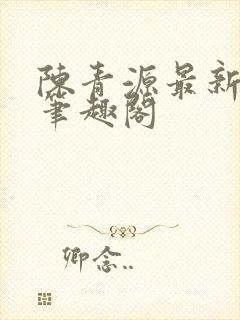 陳青源最新
筆趣閣
卿念..